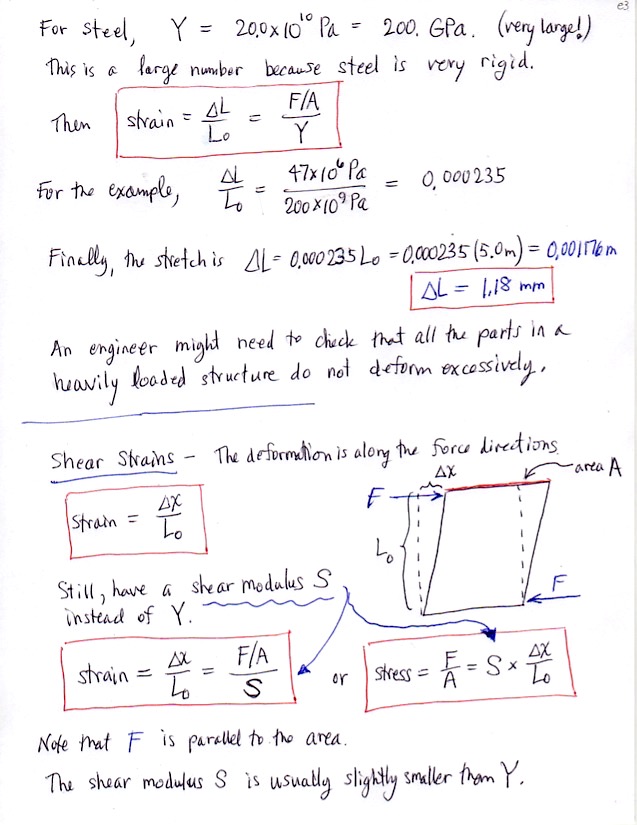 e3
For steel, Y = 20.0×10¹⁰ Pa = 200. GPa. (very large!)
This is a large number because steel is very rigid.
Then strain = ΔL/L₀ = F/A / Y
For the example, ΔL/L₀ = 47×10⁶ Pa / 200×10⁹ Pa = 0.000235
Finally, the stretch is ΔL = 0.000235 L₀ = 0.000235 (5.0m) = 0.00176 m
ΔL = 1.18 mm
An engineer might need to check that all the parts in a
heavily loaded structure do not deform excessively.
Shear Strains – The deformation is along the force directions.
Δx
area A
F
strain = Δx/L₀
L₀
Still, have a shear modulus S
F
instead of Y.
strain = Δx/L₀ = F/A / S or stress = F/A = S × Δx/L₀
Note that F is parallel to the area.
The shear modulus S is usually slightly smaller than Y.